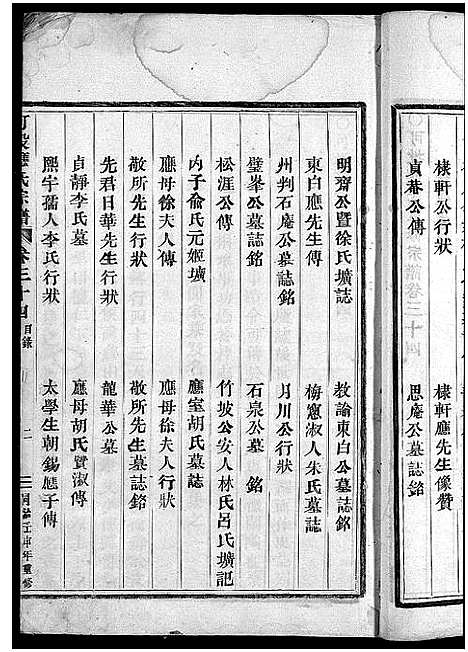 棣軒公行狀
棣軒應先生像贊
貞菴公傳
思庵公墓誌銘
明齋公暨徐氏壙誌
教諭東白公墓誌銘
東白應先生傳
梅窻淑人朱氏墓誌
州判石庵公墓誌銘
月川公行狀
璧峯公墓誌銘
石泉公墓銘
松涯公傳
竹坡公安人林氏呂氏壙記
內子俞氏元姬壙
應室胡氏墓誌
應母徐夫人傳
應母徐夫人行狀
敬所先生行狀
敬所先生墓誌銘
先君日華先生行狀
龍華公墓
貞靜李氏墓
應母胡氏賢淑傳
熙宇孺人李氏行狀
太學生朝錫應子傳
應氏宗譜
卷三十四
目錄
二
年重修